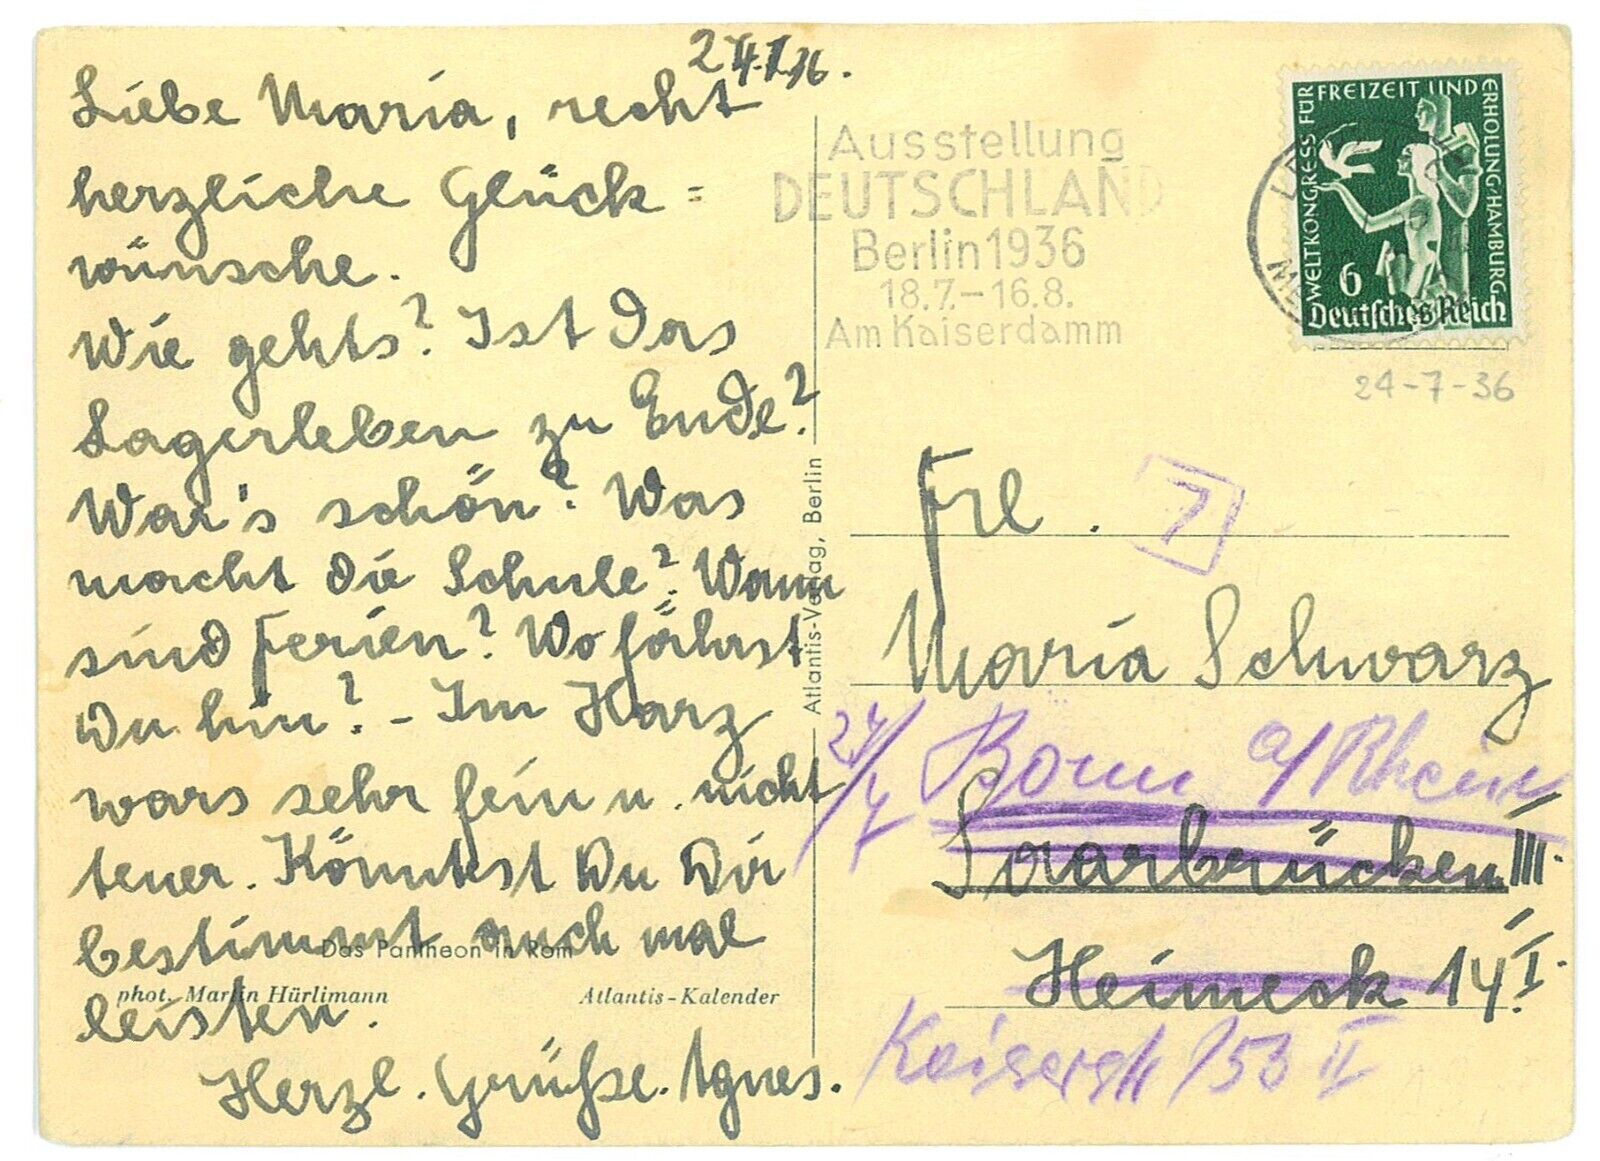 24.7.36.
Liebe Maria, recht
herzliche Glück=
wünsche.
Wie gehts? Ist das
Lagerleben zu Ende?
War's schön? Was
macht die Schule? Wann
sind Ferien? Wo fährst
Du hin? - Im Harz
wars sehr fein u. nicht
teuer. Könntest Du Dir
bestimmt auch mal
leisten.
Herzl. Grüße. Agnes.
Das Pantheon in Rom
phot. Martin Hürlimann
Atlantis-Kalender
Atlantis-Verlag, Berlin
Ausstellung
DEUTSCHLAND
Berlin 1936
18.7.–16.8.
Am Kaiserdamm
WELTKONGRESS FÜR
FREIZEIT UND
ERHOLUNG·HAMBURG
6
Deutsches Reich
24-7-36
Frl.
7
Maria Schwarz
24/7
Bonn a/Rhein
Saarbrücken III.
Heimeck 14 I.
Kaiserstr 153 II